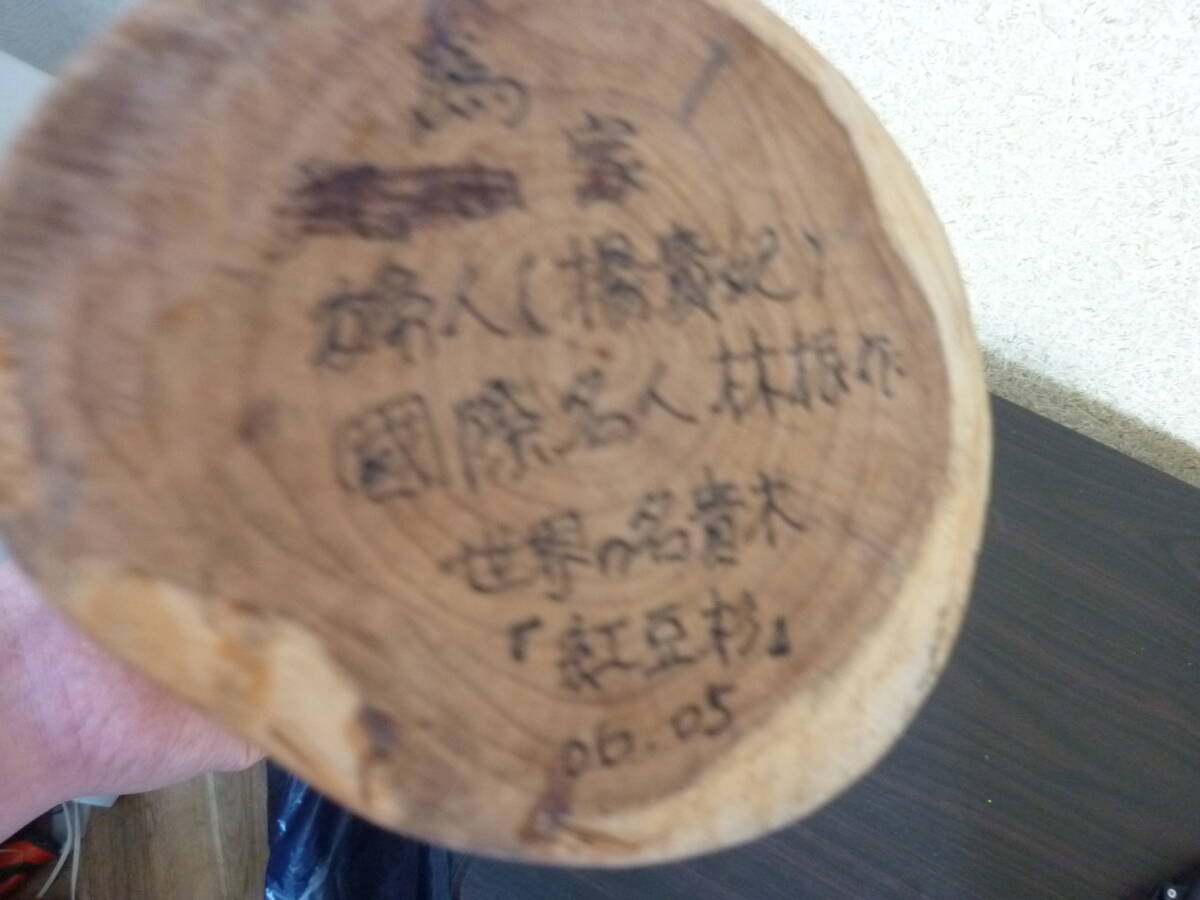 婦人(楊貴妃)
國際名人 林振作
世界の名貴木
『紅豆杉』
06.05